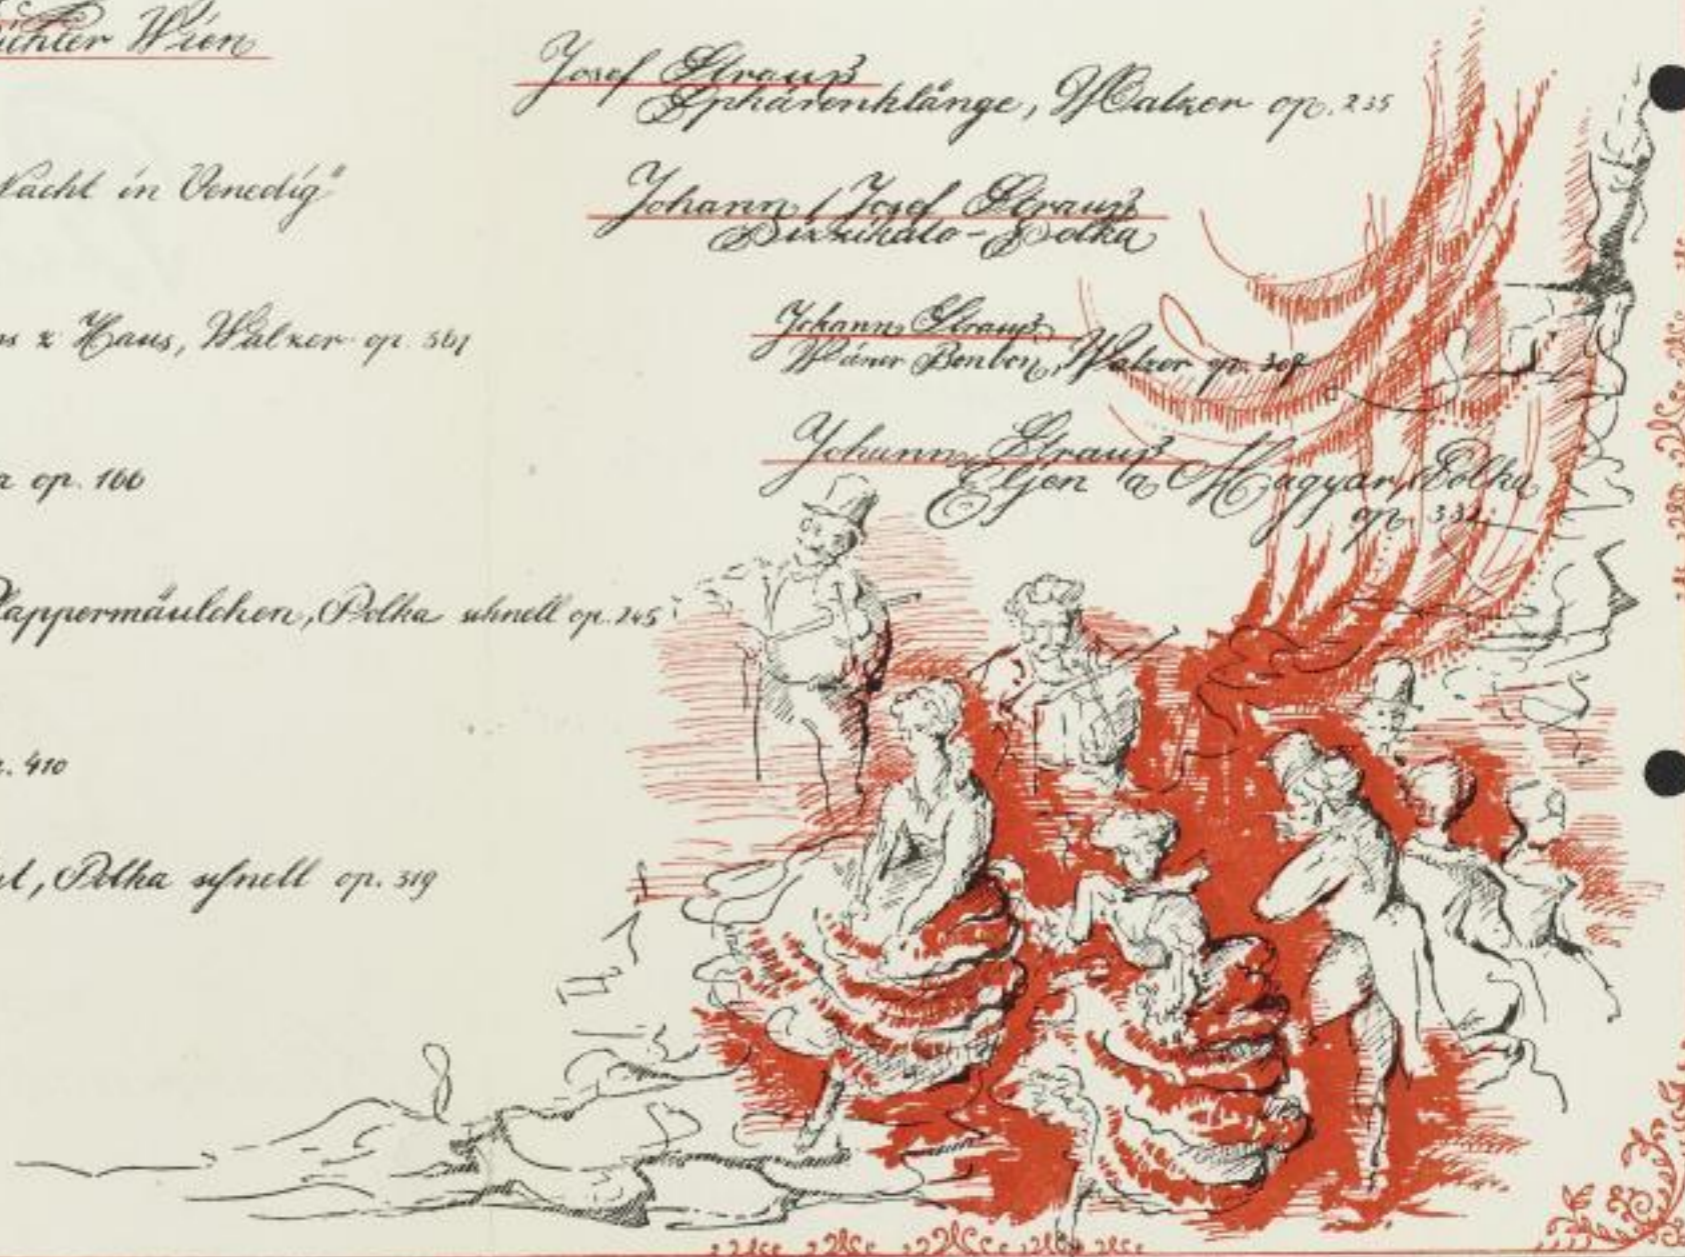 Wien
Nacht in Venedig"
z Haus, Walzer op. 361
op. 166
Plappermäulchen, Polka schnell op. 245
410
Polka schnell op. 319
Josef Strauß
Sphärenklänge, Walzer op. 235
Johann / Josef Strauß
Pizzikato-Polka
Johann Strauß
Wiener Bonbon, Walzer op. 307
Johann Strauß
Eljen a Magyar, Polka
op. 332